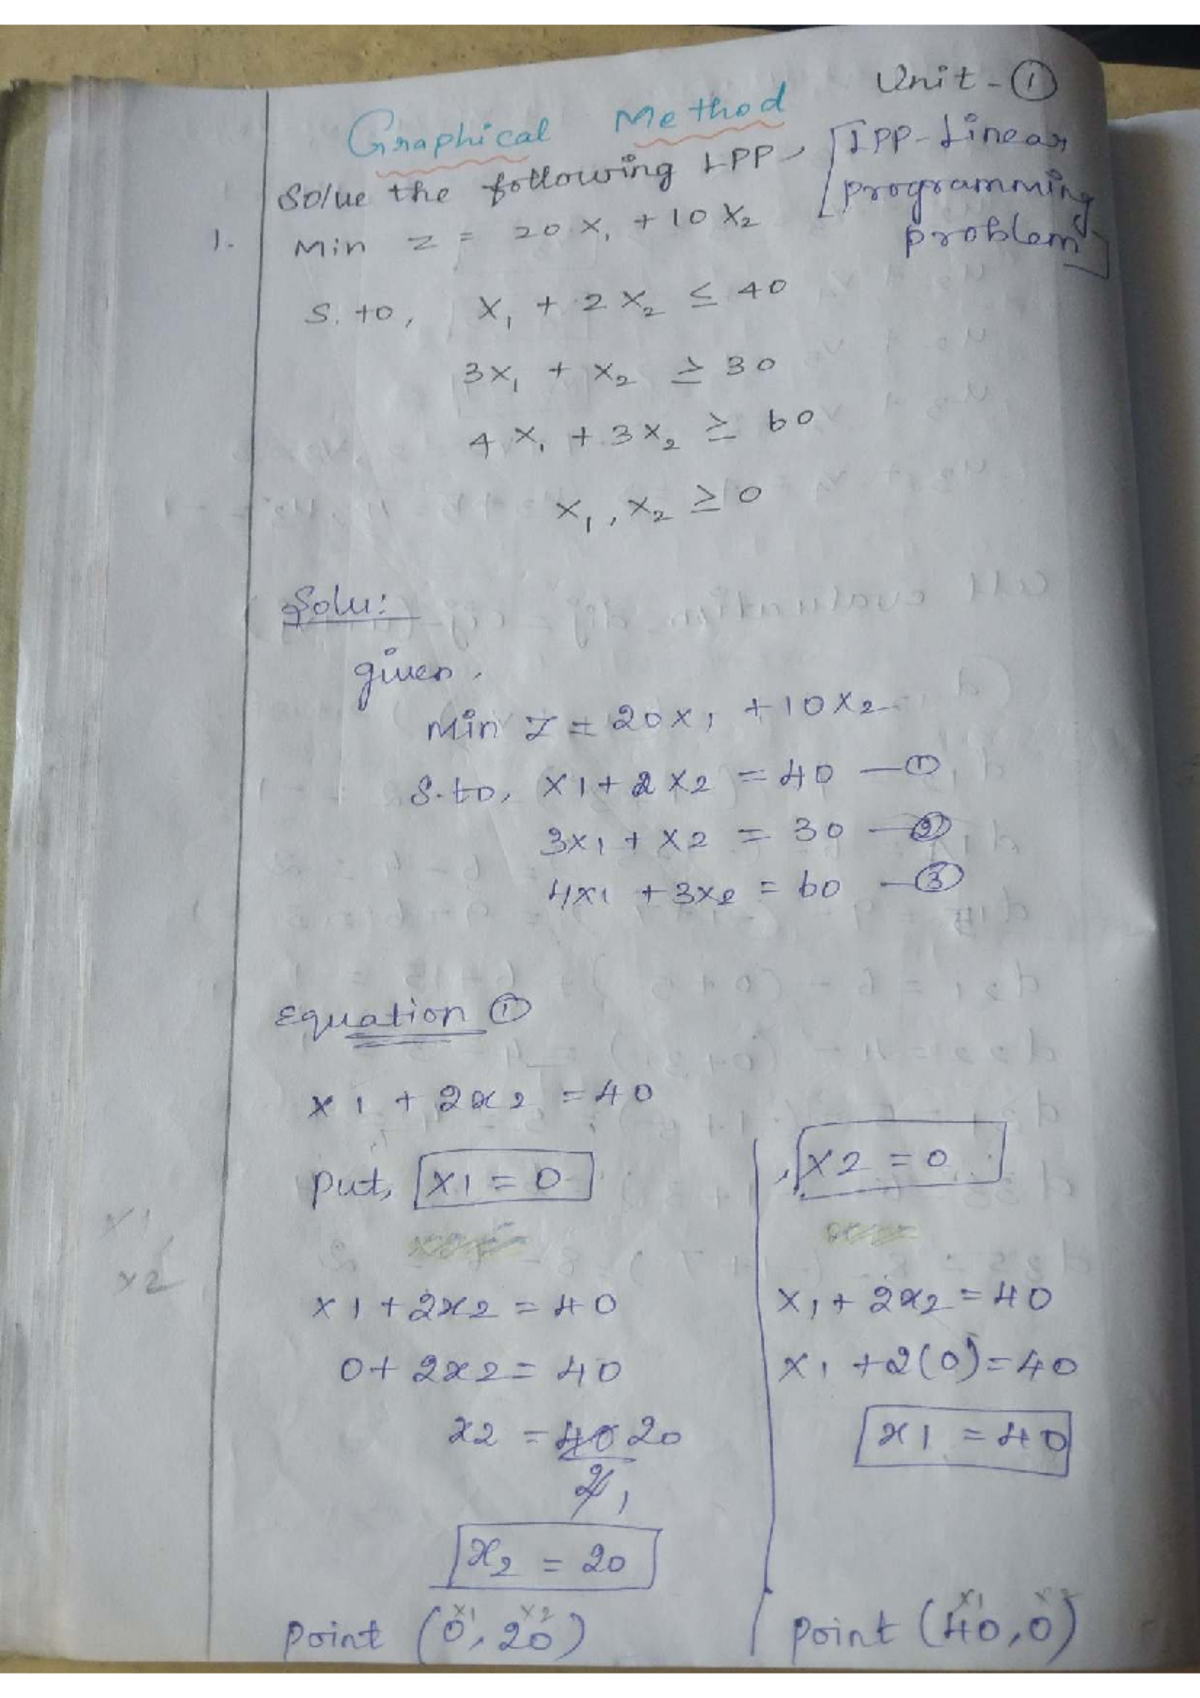 Unit - ①
Graphical Method
Solve the following LPP, [LPP - Linear programming problem]
1. Min Z = 20 x₁ + 10 x₂
S. to, x₁ + 2x₂ ≤ 40
3x₁ + x₂ ≥ 30
4x₁ + 3x₂ ≥ 60
x₁, x₂ ≥ 0
Solu:
given,
Min Z = 20x₁ + 10x₂
S.to, x1 + 2x2 = 40 — ①
3x₁ + x2 = 30 — ②
4x1 + 3x2 = 60 — ③
Equation ①
x1 + 2x2 = 40
put, x1 = 0
x1 + 2x2 = 40
0 + 2x2 = 40
x2 = 40 20
2 1
x₂ = 20
point (0, 20)
x1 x2
, x2 = 0
x₁ + 2x2 = 40
x1 + 2(0) = 40
x1 = 40
point (40, 0)
x1
x1
x2